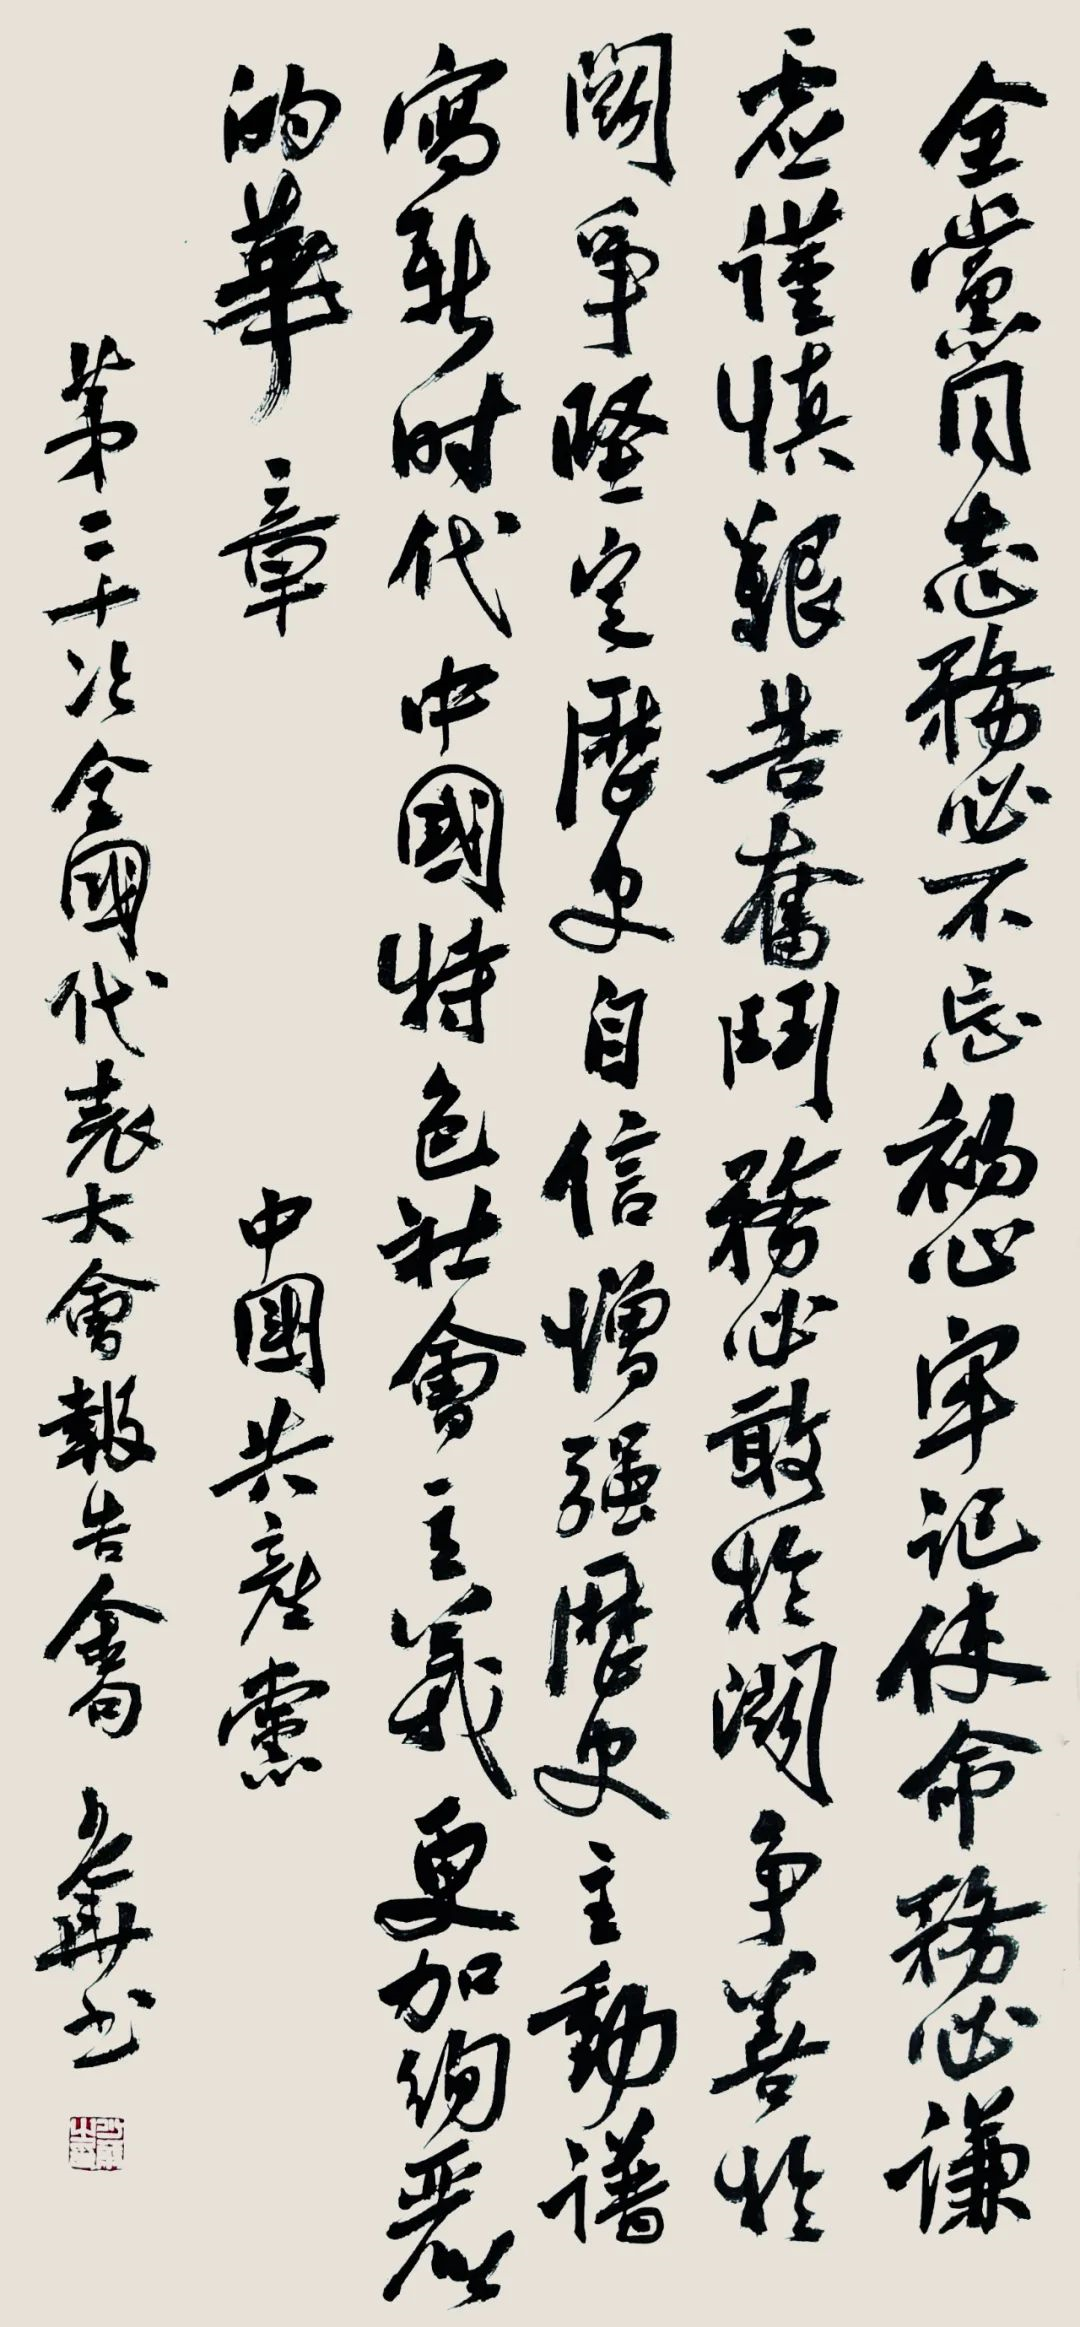 全黨同志務必不忘初心牢記使命務必謙
虛謹慎艱苦奮鬥務必敢於鬪争善於
鬪争堅定歷史自信增强歷史主動譜
寫新时代中國特色社會主義更加絢麗
的華章
中國共產黨
第二十次全國代表大會報告
書